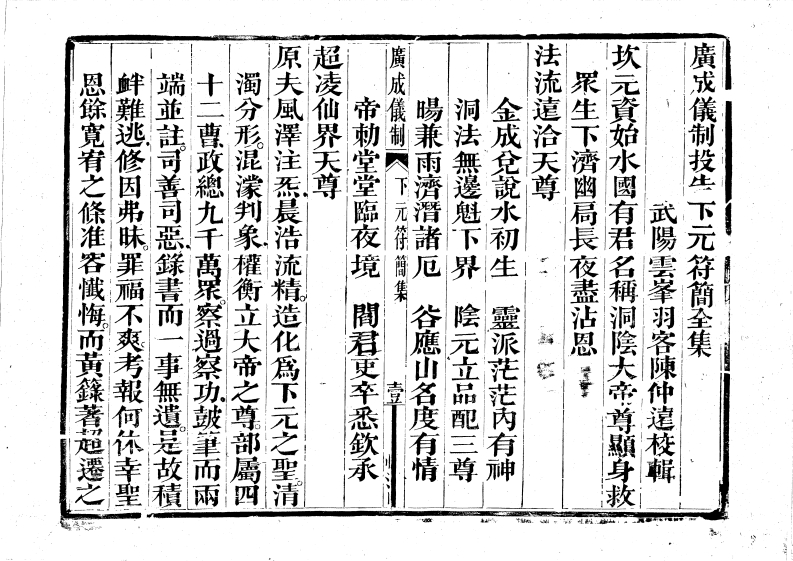 廣成儀制投生下元符簡全集
武陽雲峯羽客陳仲遠校輯
坎元資始水國有君名稱洞陰大帝尊顯身救
眾生下濟幽扃長夜盡沾恩
法流遠洽天尊
金成兌說水初生　靈派茫茫內有神
洞法無邊魁下界　陰元立品配三尊
暘兼雨濟潛諸厄　谷應山名度有情
廣成儀制　下元符簡集　壹
帝勅堂堂臨夜境　閻君吏卒悉欽承
超凌仙界天尊
原夫風澤注炁、晨浩流精。造化為下元之聖。清
濁分形。混濛判象、權衡立大帝之尊。部屬四
十二曹、政總九千萬眾。察過察功、皷筆而兩
端並註。司善司惡、錄書而一事無遺。是故積
衅難逃、修因弗昧。罪福不爽。考報何休。幸聖
恩餘寬宥之條准容懺悔。而黃籙著超遷之